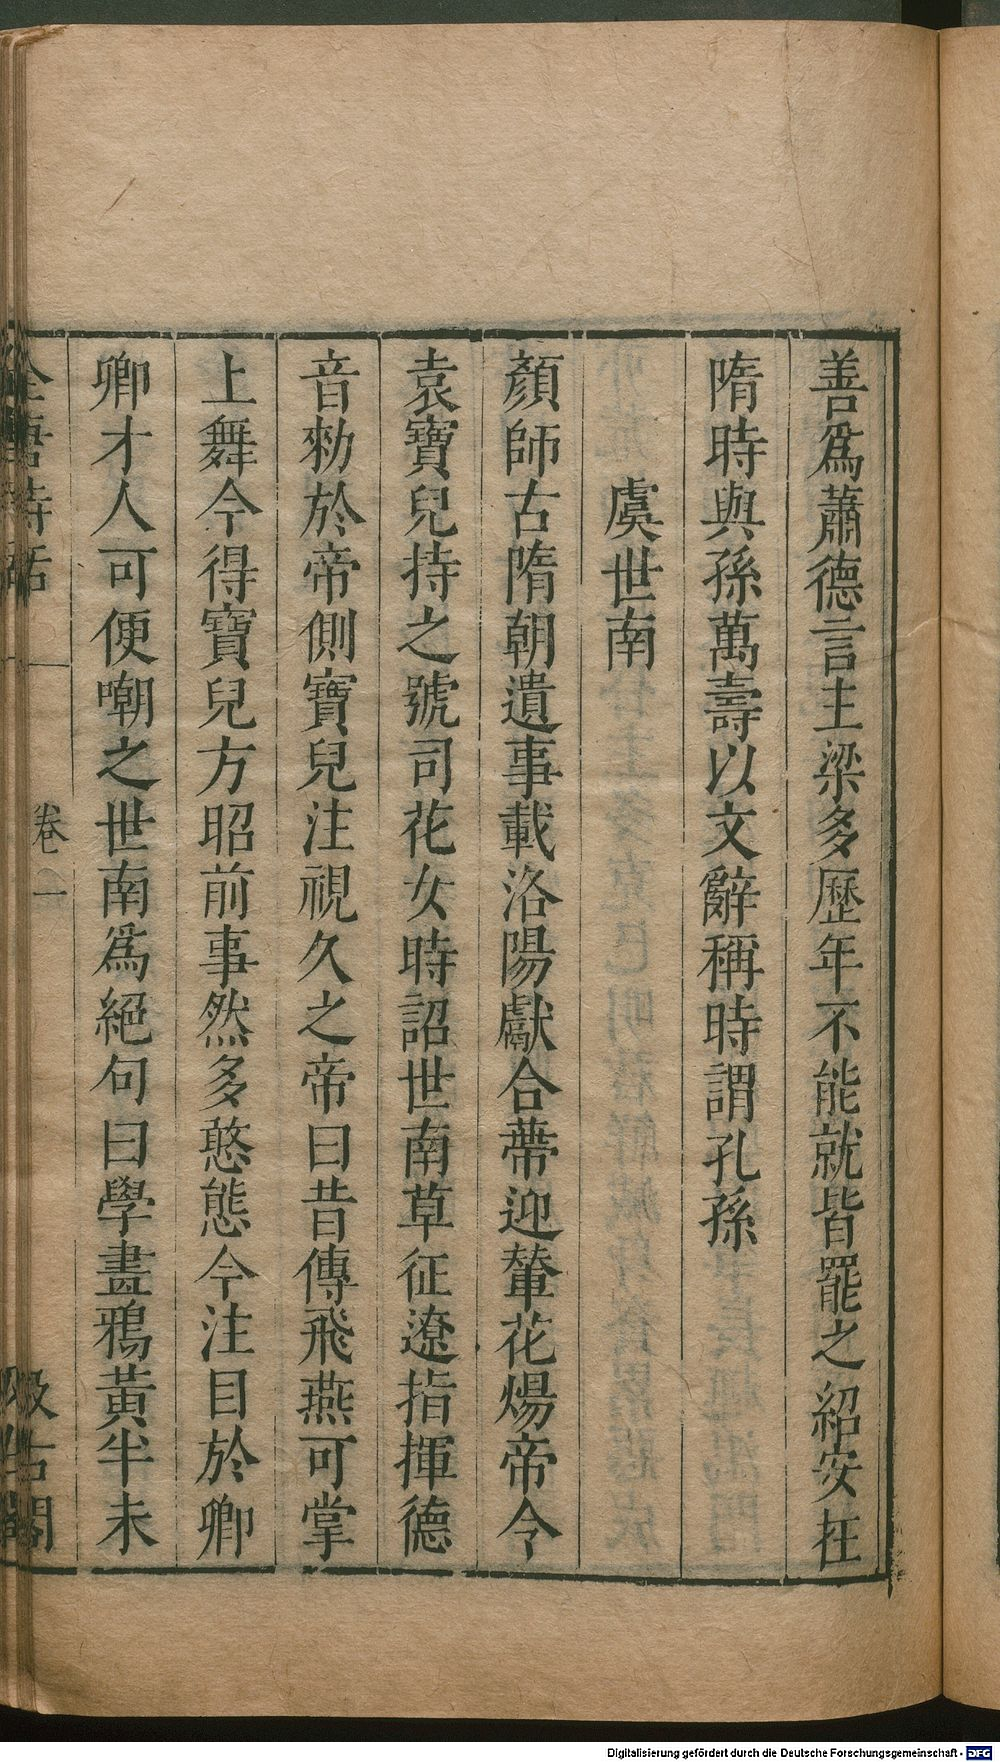 善爲蕭德言主梁多歷年不能就皆罷之紹安在
隋時與孫萬壽以文辭稱時謂孔孫
虞世南
顏師古隋朝遺事載洛陽獻合蔕迎輦花煬帝令
袁寶兒持之號司花女時詔世南草征遼指揮德
音勑於帝側寶兒注視久之帝曰昔傳飛燕可掌
上舞今得寶兒方昭前事然多憨態今注目於卿
卿才人可便嘲之世南爲絕句曰學畫鴉黃半未
全唐詩話
卷一
汲古閣
Digitalisierung gefördert durch die Deutsche Forschungsgemeinschaft - DFG